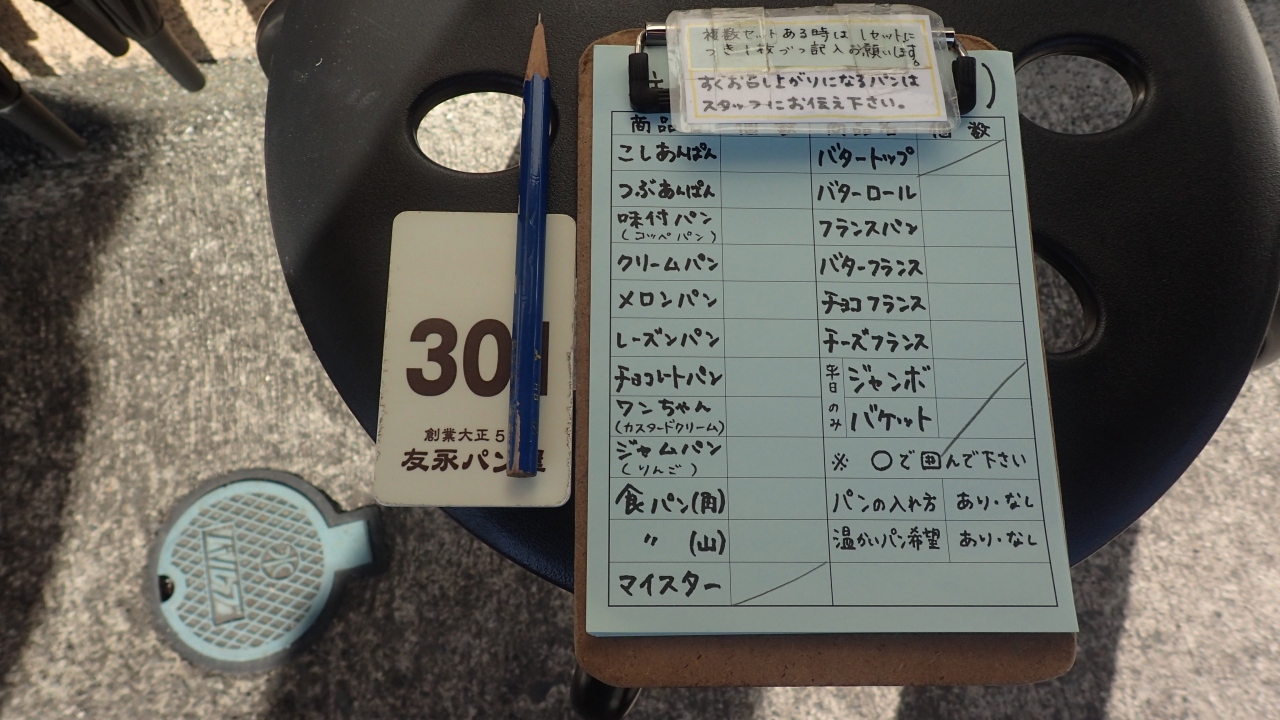 複数セットある時は1セットに
つき1枚づつ記入お願いします。
すぐお召し上がりになるパンは
スタッフにお伝え下さい。
)
商品 数
こしあんぱん バタートップ
つぶあんぱん バターロール
味付パン フランスパン
(コッペパン)
クリームパン バターフランス
メロンパン チョコフランス
レーズンパン チーズフランス
チョコレートパン 平日のみ ジャンボ
ワンちゃん バケット
(カスタードクリーム)
ジャムパン ※ ○で囲んで下さい
(りんご)
食パン(角) パンの入れ方 あり・なし
〃 (山) 温かいパン希望 あり・なし
マイスター
301
創業大正5
友永パン屋
バルブ